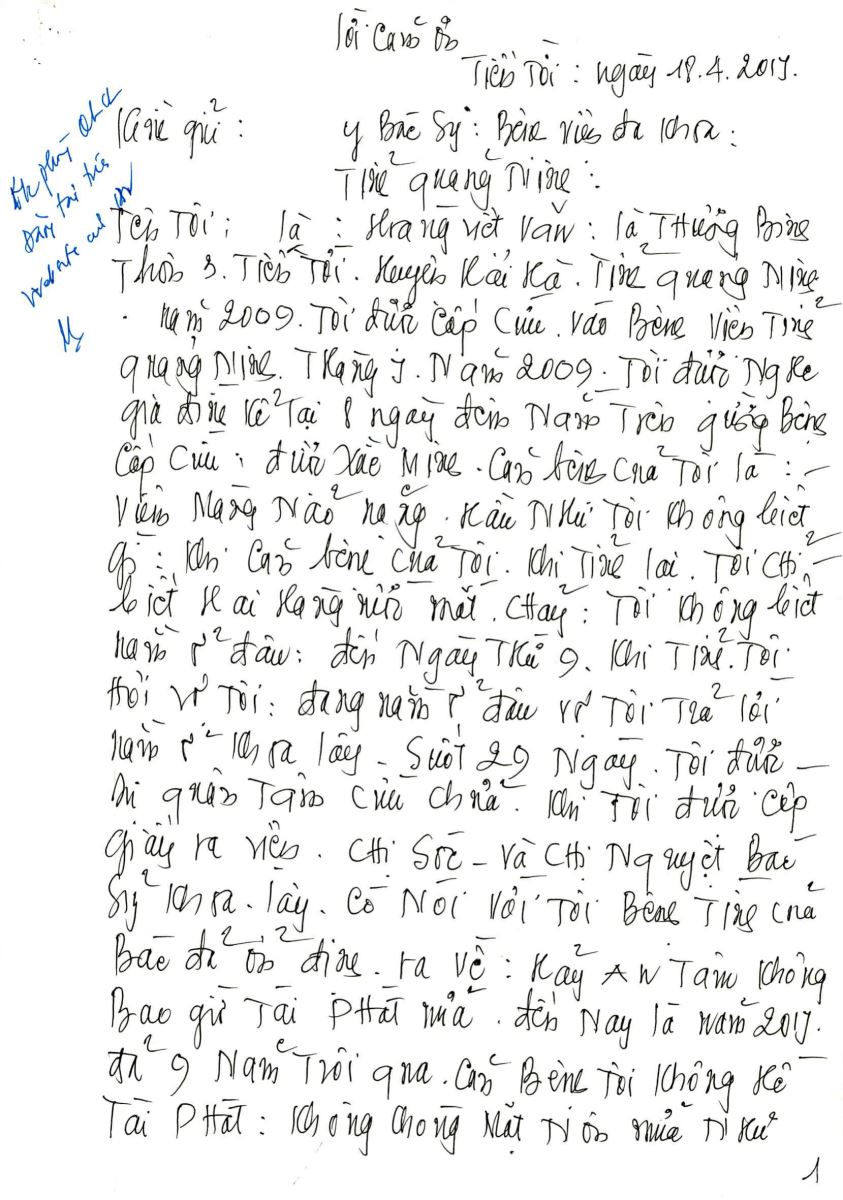 Lời Cảm ơn
Tiến Tới: ngày 18.4.2017.
Kính gửi: y Bác Sỹ: Bệnh viện đa khoa:
Tỉnh quảng Ninh:
Tên Tôi: là: Hoàng việt Văn: là Thương Binh
Thôn 3. Tiến Tới. Huyện Hải Hà. Tỉnh quảng Ninh
. năm 2009. Tôi được Cấp Cứu. vào Bệnh Viện Tỉnh
quảng Ninh. Tháng 7. Năm 2009. Tôi được Nghe
gia đình kể Tại 8 ngày đêm Nằm Trên giường Bệnh
Cấp Cứu: được Xác Minh. Căn bệnh của Tôi là: –
Viêm Màng Não nặng. Hầu Như Tôi không biết
gì: khi Căn bệnh của Tôi. khi Tỉnh lại. Tôi Chỉ –
biết Hai Hàng nước mắt. Chảy: Tôi không biết
nằm ở đâu: đến Ngày Thứ 9. khi Tỉnh. Tôi
Hỏi vợ Tôi: đang nằm ở đâu vợ Tôi Trả lời
nằm ở khoa lây – Suốt 29 Ngày. Tôi được –
quân Tâm Cứu chữa. khi Tôi được Cấp
Giấy ra viện. Chị Sóc – và Chị Nguyệt Bác
Sỹ khoa. lây. Có Nói Với Tôi Bệnh Tình của
Bác đã ổn định. ra về: Hãy AN Tâm không
Bao giờ Tái Phát nữa. đến Nay là năm 2017.
đã 9 Năm Trôi qua. Căn Bệnh Tôi không Hề –
Tái Phát: không Chóng Mặt Nôn nữa Như
1